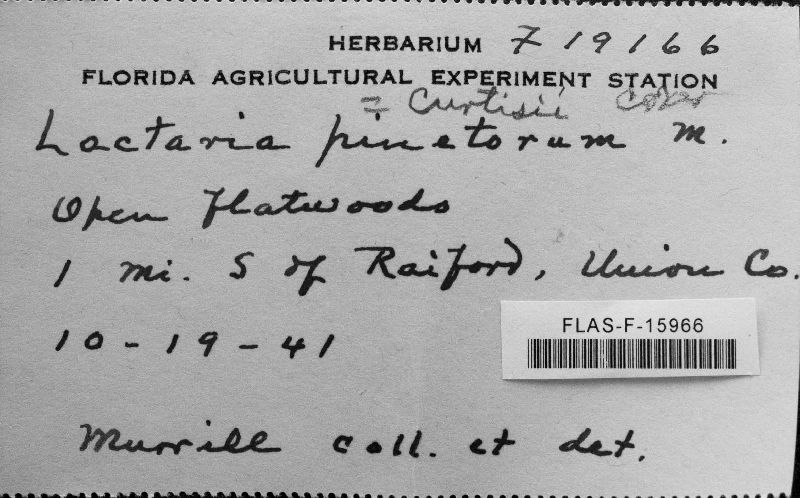 HERBARIUM F 19166
FLORIDA AGRICULTURAL EXPERIMENT STATION
= Curtisii Coker
Lactaria pinetorum M.
Open flatwoods
1 mi. S of Raiford, Union Co.
10-19-41
FLAS-F-15966
Murrill coll. et det.